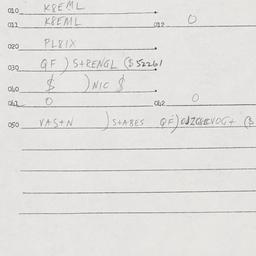 010 K8EML
011 K8EML 012 0
020 PL81X
030 QF ) S+RENGL ($ 52261
040 $ ) NIC $
041 0 042 0
050 VAS+N ) S+ABES QF) ($